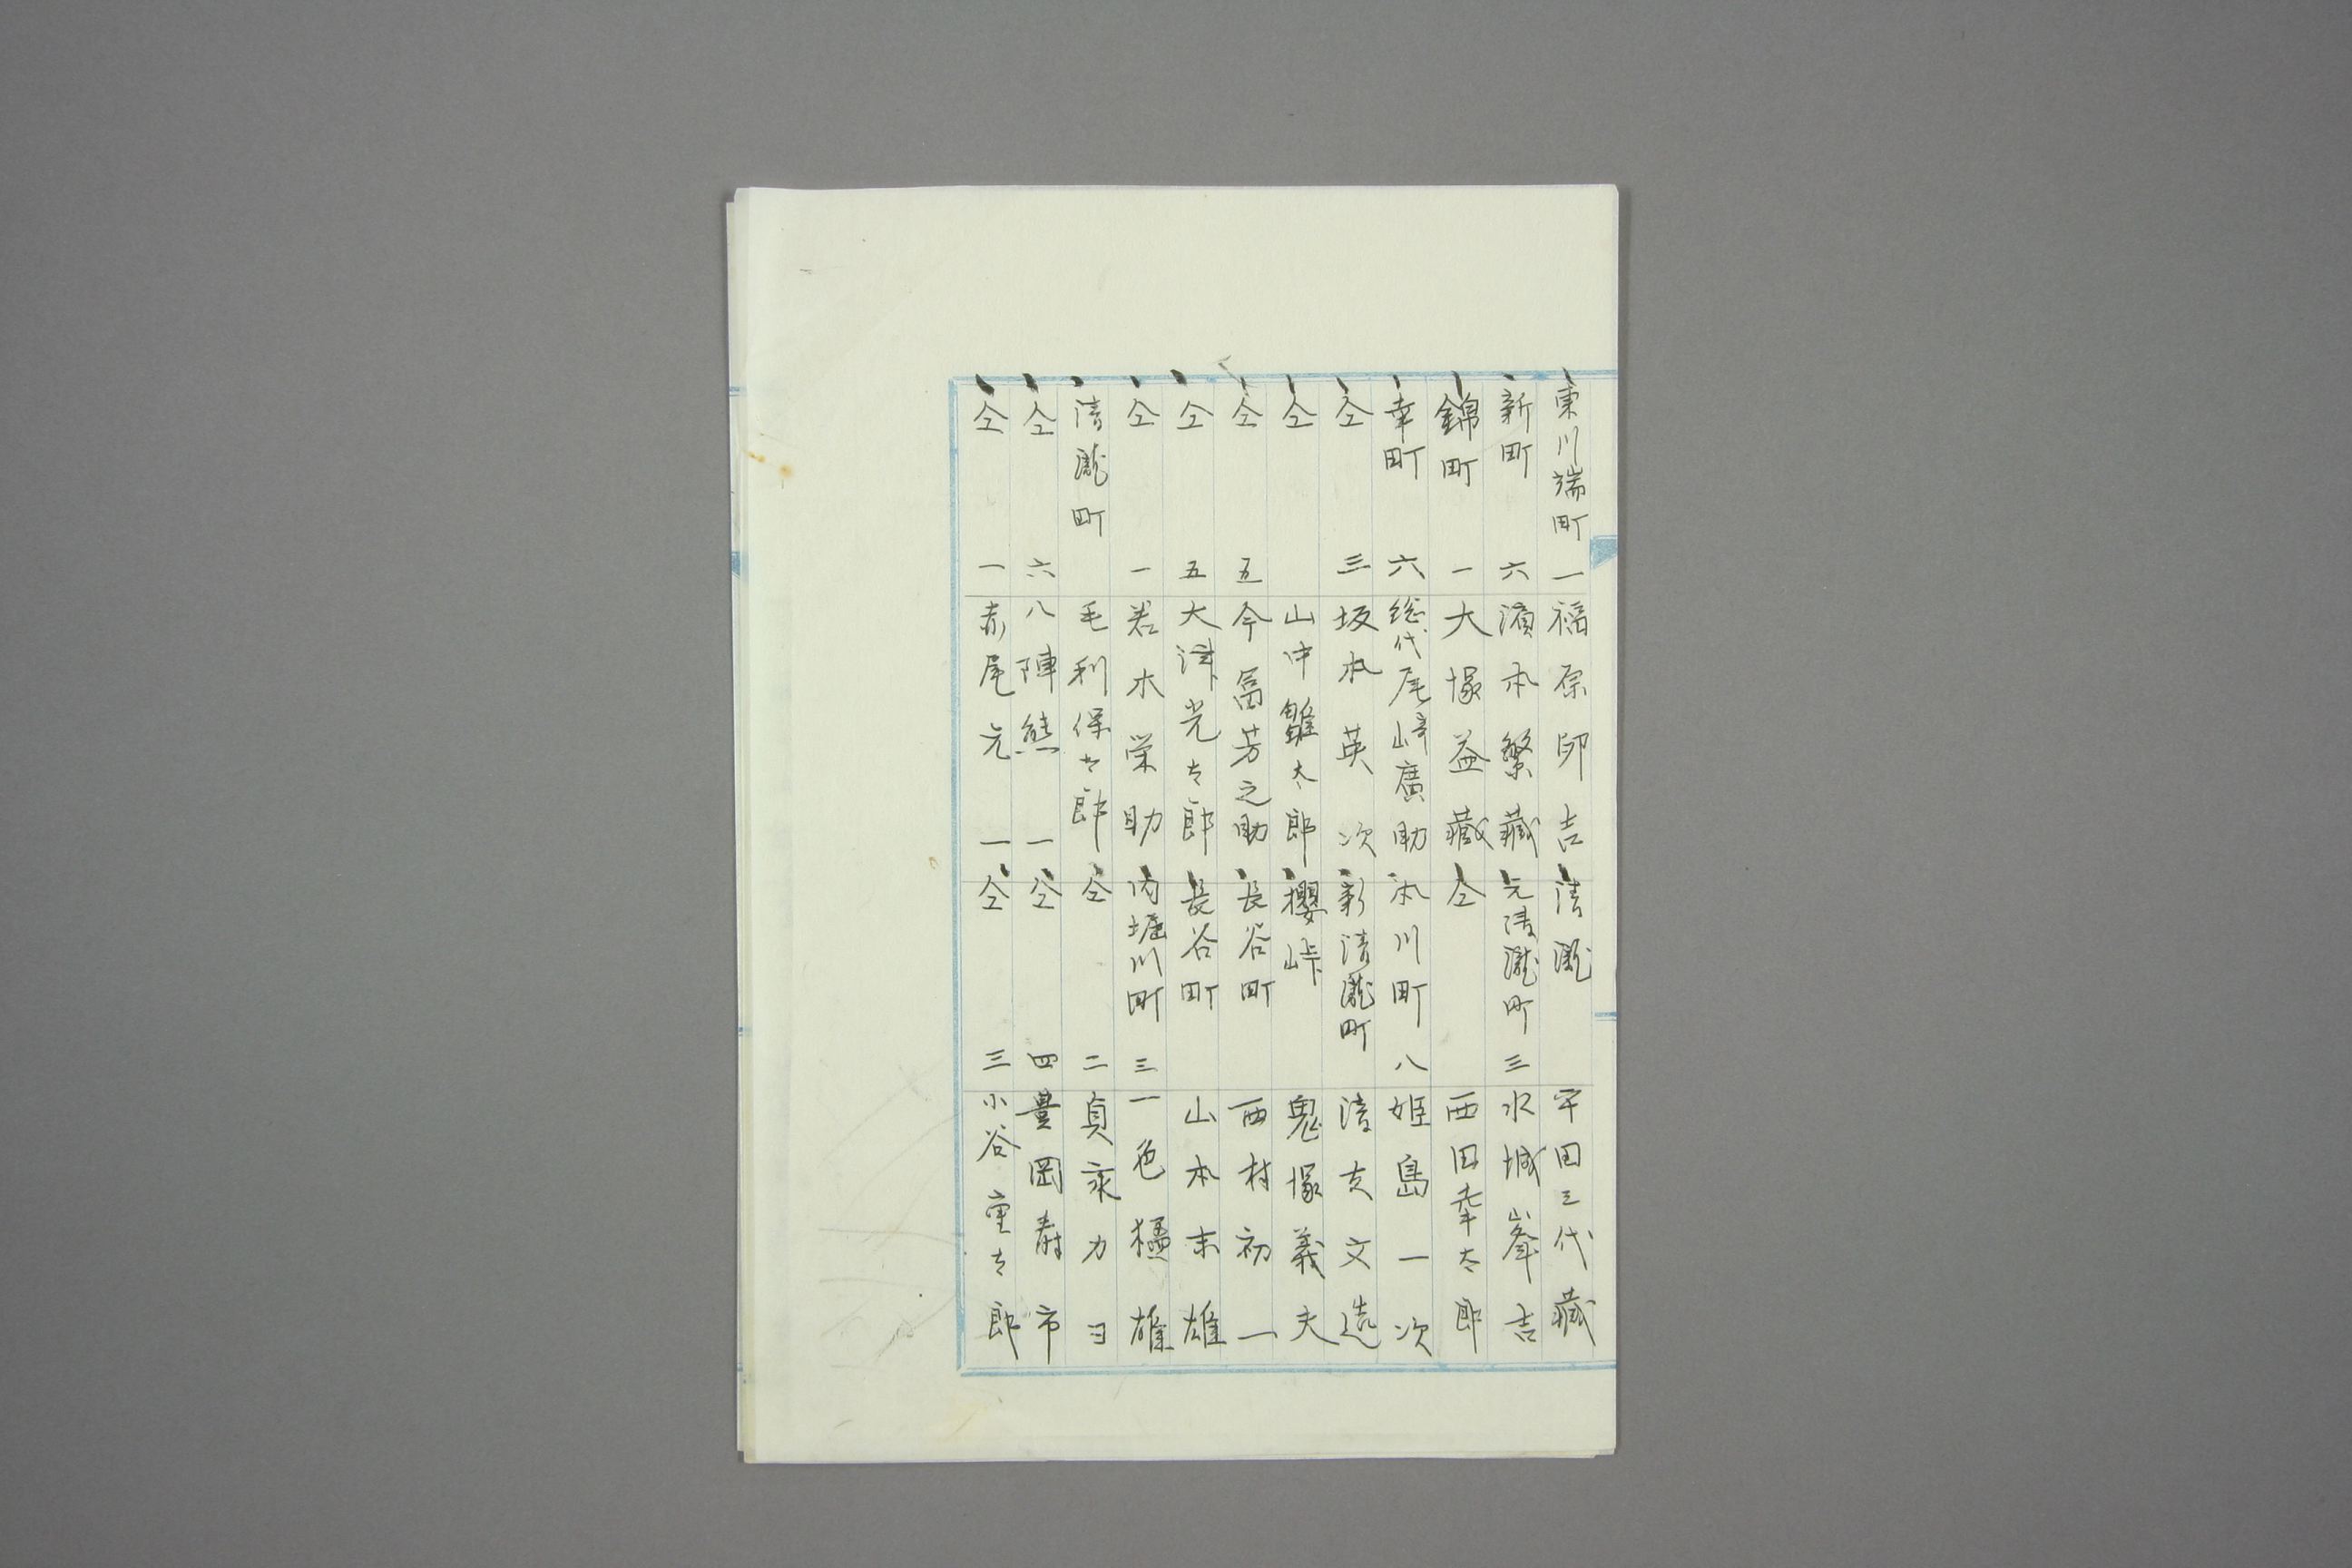 東川端町 一 福原卯吉
新町 六 濱本繁藏
錦町 一 大塚益藏
幸町 六 総代 尾崎廣助
仝 三 坂本英次
仝 山中雛太郎
仝 五 今冨芳之助
仝 五 大津光太郎
仝 一 若木栄助
清瀧町 毛利保太郎
仝 六 八陣熊一
仝 一 赤尾元一
清瀧 平田三代藏
元清瀧町 三 水城峯吉
仝 西田幸太郎
氷川町 八 姫島一次
新清瀧町 清支文造
櫻峠 鬼塚義夫
長谷町 西村初一
長谷町 山本末雄
内堀川町 三 一色猛雄
仝 二 貞乘力
仝 四 豊岡壽市
仝 三 小谷重太郎